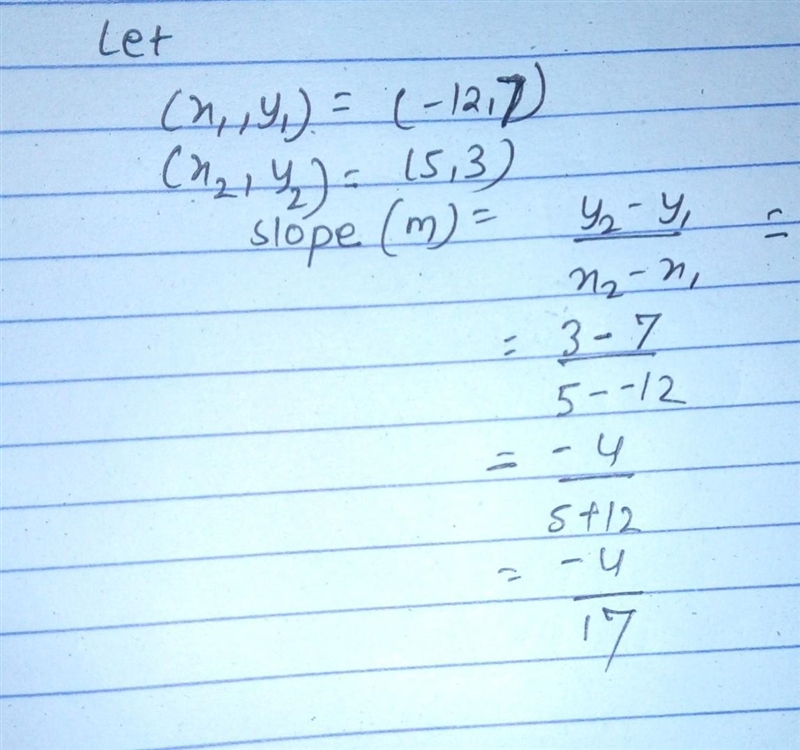 Let
(x₁, y₁) = (-12, 7)
(x₂, y₂) = (5, 3)
slope (m) = y₂ - y₁ / x₂ - x₁ =
= 3 - 7 / 5 - -12
= -4 / 5 + 12
= -4 / 17